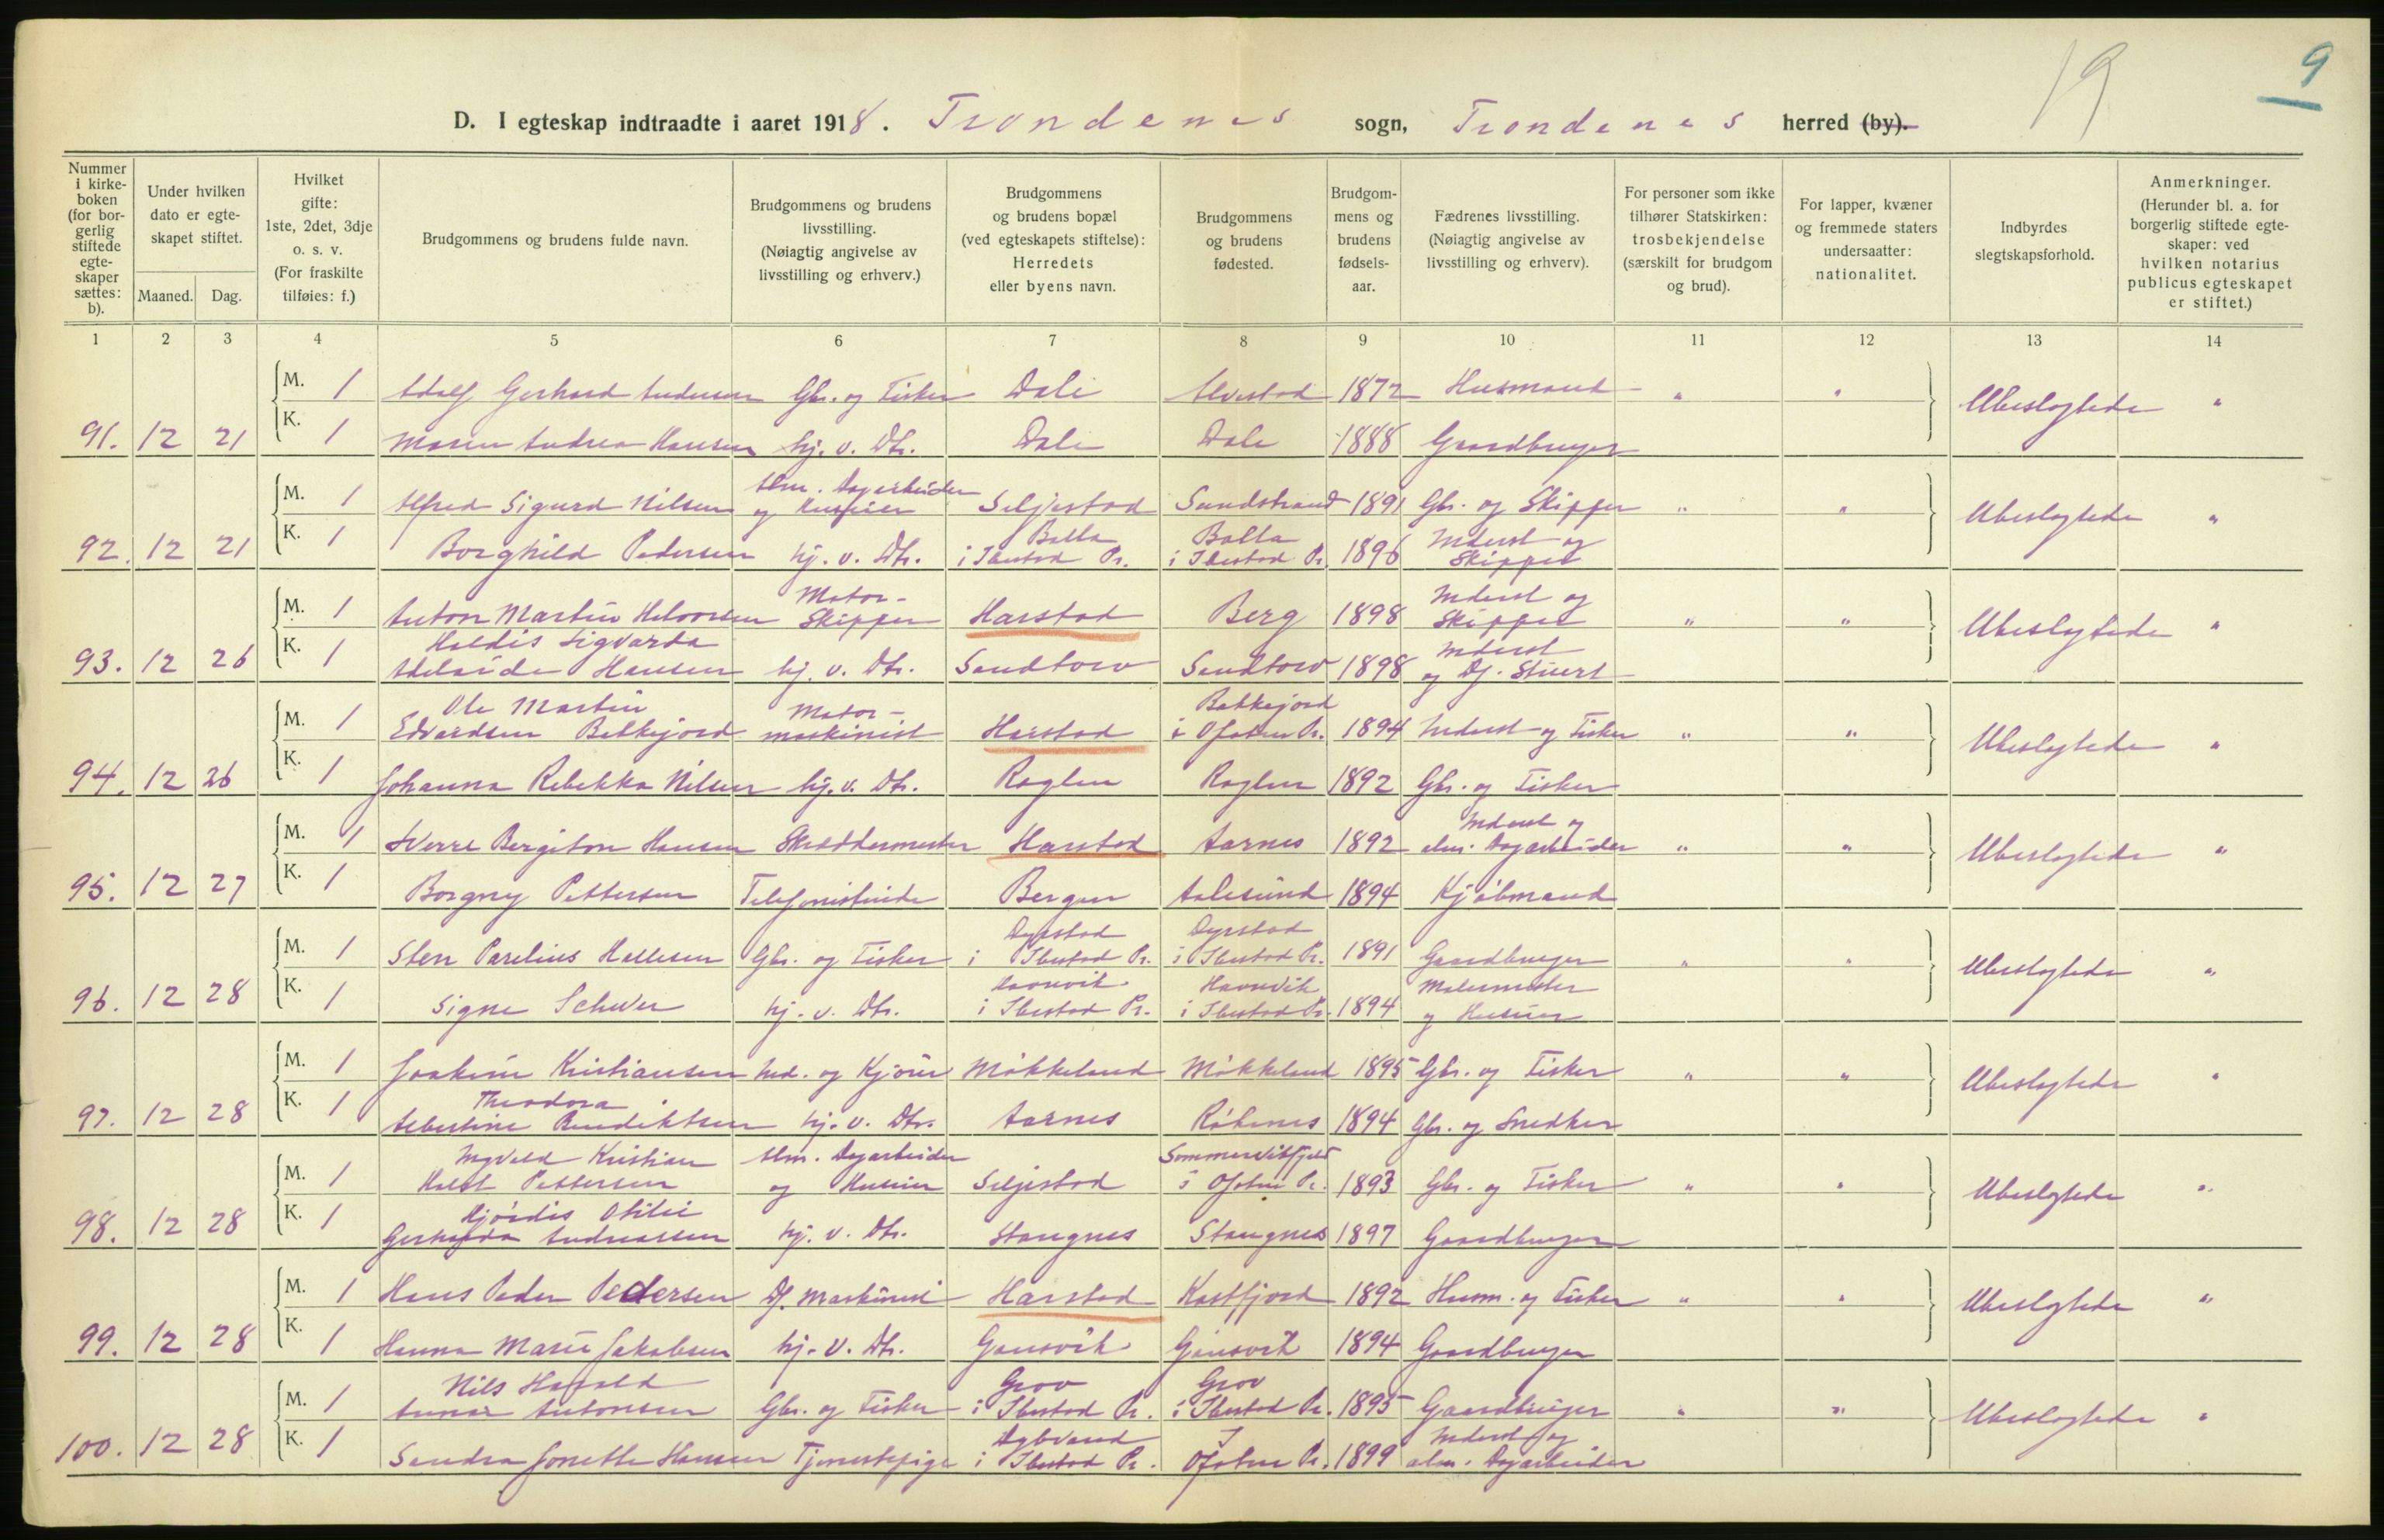 19
9
D. I egteskap indtraadte i aaret 1918. Trondenes sogn, Trondenes herred (by).
Nummer i kirkeboken (for borgerlig stiftede egteskaper sættes: b).
Under hvilken dato er egteskapet stiftet.
Maaned. Dag.
Hvilket gifte: 1ste, 2det, 3dje o. s. v. (For fraskilte tilføies: f.)
Brudgommens og brudens fulde navn.
Brudgommens og brudens livsstilling. (Nøiagtig angivelse av livsstilling og erhverv.)
Brudgommens og brudens bopæl (ved egteskapets stiftelse): Herredets eller byens navn.
Brudgommens og brudens fødested.
Brudgommens og brudens fødselsaar.
Fædrenes livsstilling. (Nøiagtig angivelse av livsstilling og erhverv).
For personer som ikke tilhører Statskirken: trosbekjendelse (særskilt for brudgom og brud).
For lapper, kvæner og fremmede staters undersaatter: nationalitet.
Indbyrdes slegtskapsforhold.
Anmerkninger. (Herunder bl. a. for borgerlig stiftede egteskaper: ved hvilken notarius publicus egteskapet er stiftet.)
1 2 3 4 5 6 7 8 9 10 11 12 13 14
M. 1 Adolf Gerhard Andersen Gbr. og Fisker Dale Alvestad 1872 Husmand " " Ubeslegtede "
91. 12 21 K. 1 Maren Andrea Hansen hj. v. Dtr. Dale Dale 1888 Gaardbruger
M. 1 Alfred Sigurd Nilsen alm. Dagarbeider og Huseier Seljestad Sandstrand 1891 Gbr. og Skipper " " Ubeslegtede "
92. 12 21 K. 1 Borghild Pedersen hj. v. Dtr. Balla i Ibestad Pr. Balla i Ibestad Pr. 1896 Inderst og Skipper
M. 1 Anton Martin Halvorsen Motor-Skipper Harstad Berg 1898 Inderst og Skipper " " Ubeslegtede "
93. 12 26 K. 1 Haldis Sigvarda Adelaide Hansen hj. v. Dtr. Sandtorv Sandtorv 1898 Inderst og Df. Stuert
M. 1 Ole Martin Edvardsen Balkejord Motor-maskinist Harstad Balkejord i Ofoten Pr. 1894 Inderst og Fisker " " Ubeslegtede "
94. 12 26 K. 1 Johanna Rebekka Nilsen hj. v. Dtr. Roglen Roglen 1892 Gbr. og Fisker
M. 1 Sverre Bergiton Hansen Skreddermester Harstad Aarnes 1892 Inderst og alm. Dagarbeider " " Ubeslegtede "
95. 12 27 K. 1 Borgny Pettersen Telefonistinde Bergen Aalesund 1894 Kjøbmand
M. 1 Sten Parelius Hallesen Gbr. og Fisker Dyrstad i Ibestad Pr. Dyrstad i Ibestad Pr. 1891 Gaardbruger " " Ubeslegtede "
96. 12 28 K. 1 Signe Schver hj. v. Dtr. Havnvik i Ibestad Pr. Havnvik i Ibestad Pr. 1894 Malermester og Huseier
M. 1 Joakim Kristiansen Ind. og Kjører Møkkeland Møkkeland 1895 Gbr. og Fisker " " Ubeslegtede "
97. 12 28 K. 1 Theodora Albertine Benediktsen hj. v. Dtr. Aarnes Røkenes 1894 Gbr. og Snedker
M. 1 Ingvald Kristian Holst Pettersen alm. Dagarbeider og Huseier Seljestad i Ofoten Pr. 1893 Gbr. og Fisker " " Ubeslegtede "
98. 12 28 K. 1 Hjørdis Otilie Gerharda Andreassen hj. v. Dtr. Stangnes Stangnes 1897 Gaardbruger
M. 1 Hans Peder Pedersen Df. Maskinist Harstad Kastfjord 1892 Husm. og Fisker " " Ubeslegtede "
99. 12 28 K. 1 Hanna Marie Jakobsen hj. v. Dtr. Gausvik Gausvik 1894 Gaardbruger
M. 1 Nils Harald Antonsen Gbr. og Fisker Grov i Ibestad Pr. Grov i Ibestad Pr. 1895 Gaardbruger " " Ubeslegtede "
100. 12 28 K. 1 Sandra Jonette Hansen Tjenestepige i Ibestad Pr. I Ofoten Pr. 1899 Inderst og alm. Dagarbeider